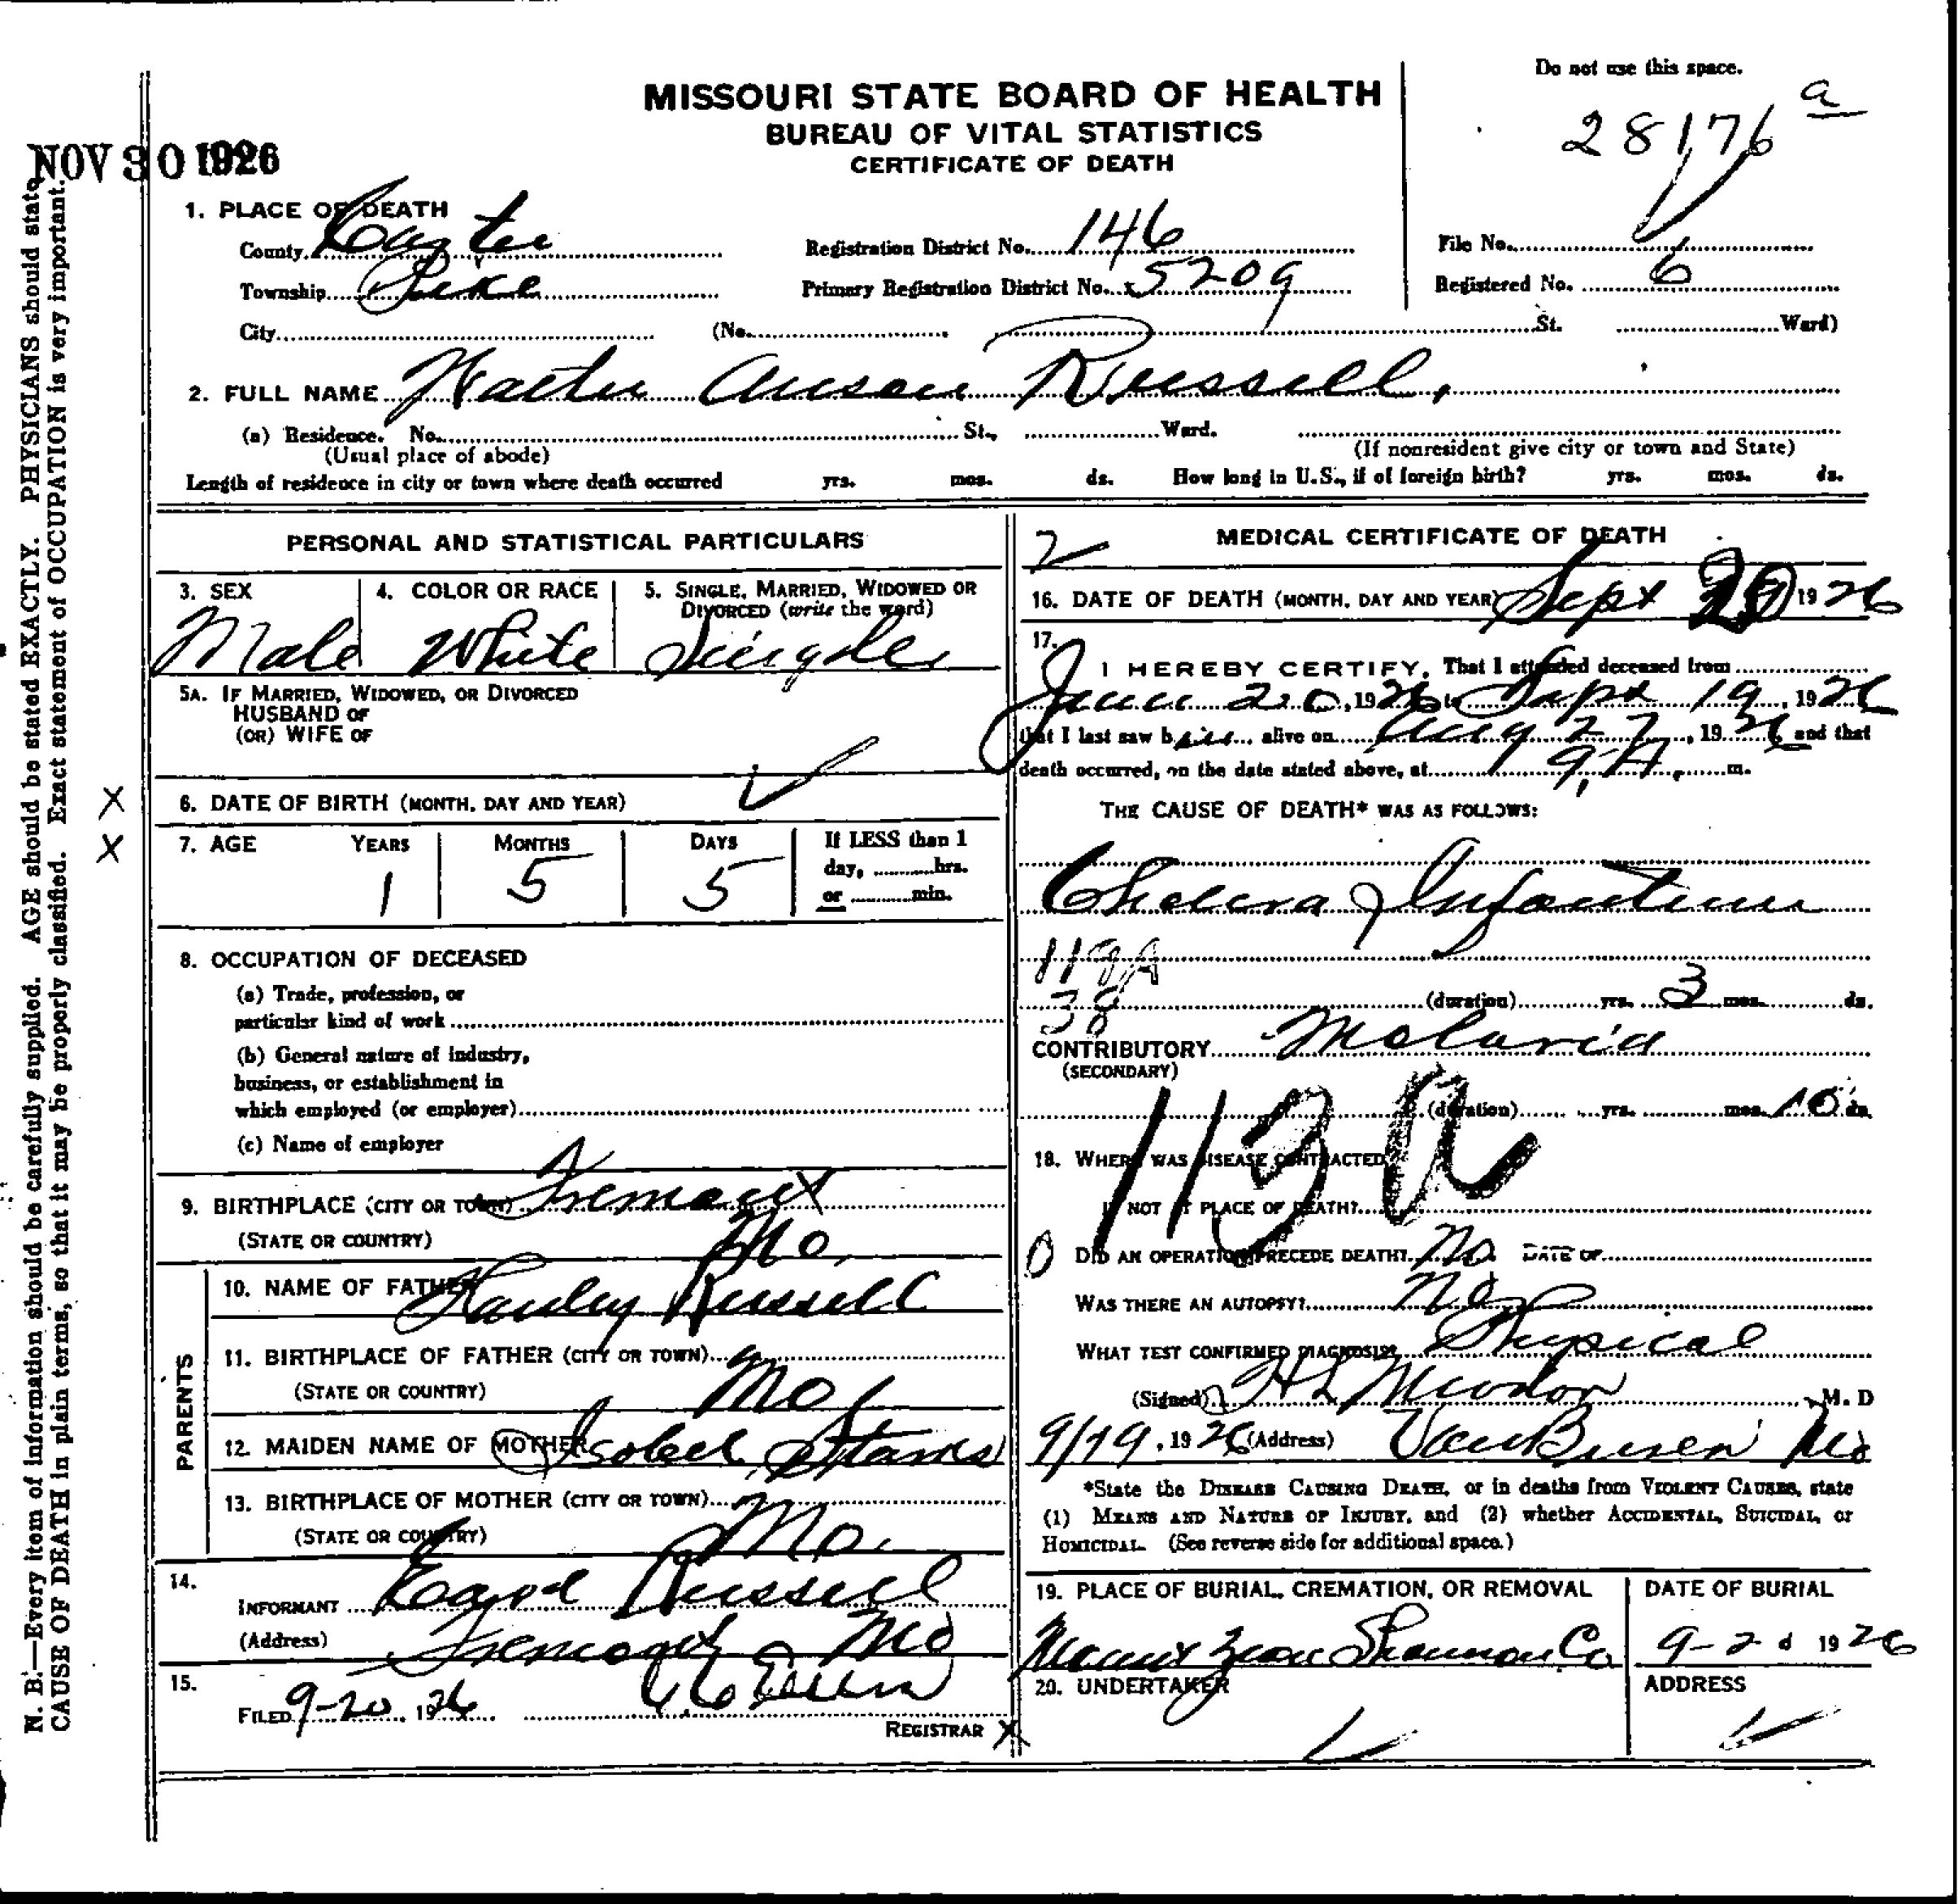 Do not use this space.
MISSOURI STATE BOARD OF HEALTH
BUREAU OF VITAL STATISTICS
CERTIFICATE OF DEATH
28176 a
NOV 30 1926
1. PLACE OF DEATH
County Carter
Registration District No. 146
File No.
Township Pike
Primary Registration District No. 5209
Registered No. 6
City (No. St. Ward)
2. FULL NAME Walter Anson Russell,
(a) Residence. No. St., Ward.
(Usual place of abode) (If nonresident give city or town and State)
Length of residence in city or town where death occurred yrs. mos. ds. How long in U.S., if of foreign birth? yrs. mos. ds.
PERSONAL AND STATISTICAL PARTICULARS
3. SEX 4. COLOR OR RACE 5. SINGLE, MARRIED, WIDOWED OR
DIVORCED (write the word)
Male White Single
5A. IF MARRIED, WIDOWED, OR DIVORCED
HUSBAND OF
(OR) WIFE OF
6. DATE OF BIRTH (MONTH, DAY AND YEAR)
7. AGE YEARS MONTHS DAYS If LESS than 1
day, hrs.
or min.
1 5 5
8. OCCUPATION OF DECEASED
(a) Trade, profession, or
particular kind of work
(b) General nature of industry,
business, or establishment in
which employed (or employer)
(c) Name of employer
9. BIRTHPLACE (CITY OR TOWN) Fremont
(STATE OR COUNTRY) Mo.
PARENTS
10. NAME OF FATHER Russell
11. BIRTHPLACE OF FATHER (CITY OR TOWN)
(STATE OR COUNTRY) Mo
12. MAIDEN NAME OF MOTHER Isobell
13. BIRTHPLACE OF MOTHER (CITY OR TOWN)
(STATE OR COUNTRY) Mo.
14.
INFORMANT Russell
(Address) Fremont Mo
15.
FILED 9-20, 1926
REGISTRAR
2
MEDICAL CERTIFICATE OF DEATH
16. DATE OF DEATH (MONTH, DAY AND YEAR) Sept 1926
17.
I HEREBY CERTIFY, That I attended deceased from
June 20, 1926 to Sept 19, 1926
that I last saw him alive on Aug 27, 1926 and that
death occurred, on the date stated above, at 9 A. m.
THE CAUSE OF DEATH* WAS AS FOLLOWS:
Cholera Infantum
119A
38
(duration) yrs. 3 mos. ds.
CONTRIBUTORY Malaria
(SECONDARY)
(duration) yrs. mos. 10 ds.
113
18. WHERE WAS DISEASE CONTRACTED
IF NOT AT PLACE OF DEATH?
DID AN OPERATION PRECEDE DEATH? No DATE OF
WAS THERE AN AUTOPSY? No
WHAT TEST CONFIRMED DIAGNOSIS? Physical
(Signed) M. D
9/19, 1926 (Address) Van Buren Mo
*State the DISEASE CAUSING DEATH, or in deaths from VIOLENT CAUSES, state
(1) MEANS AND NATURE OF INJURY, and (2) whether ACCIDENTAL, SUICIDAL, or
HOMICIDAL. (See reverse side for additional space.)
19. PLACE OF BURIAL, CREMATION, OR REMOVAL DATE OF BURIAL
Mount Zion Shannon Co 1926
20. UNDERTAKER ADDRESS
N. B.—Every item of information should be carefully supplied. AGE should be stated EXACTLY. PHYSICIANS should state
CAUSE OF DEATH in plain terms, so that it may be properly classified. Exact statement of OCCUPATION is very important.